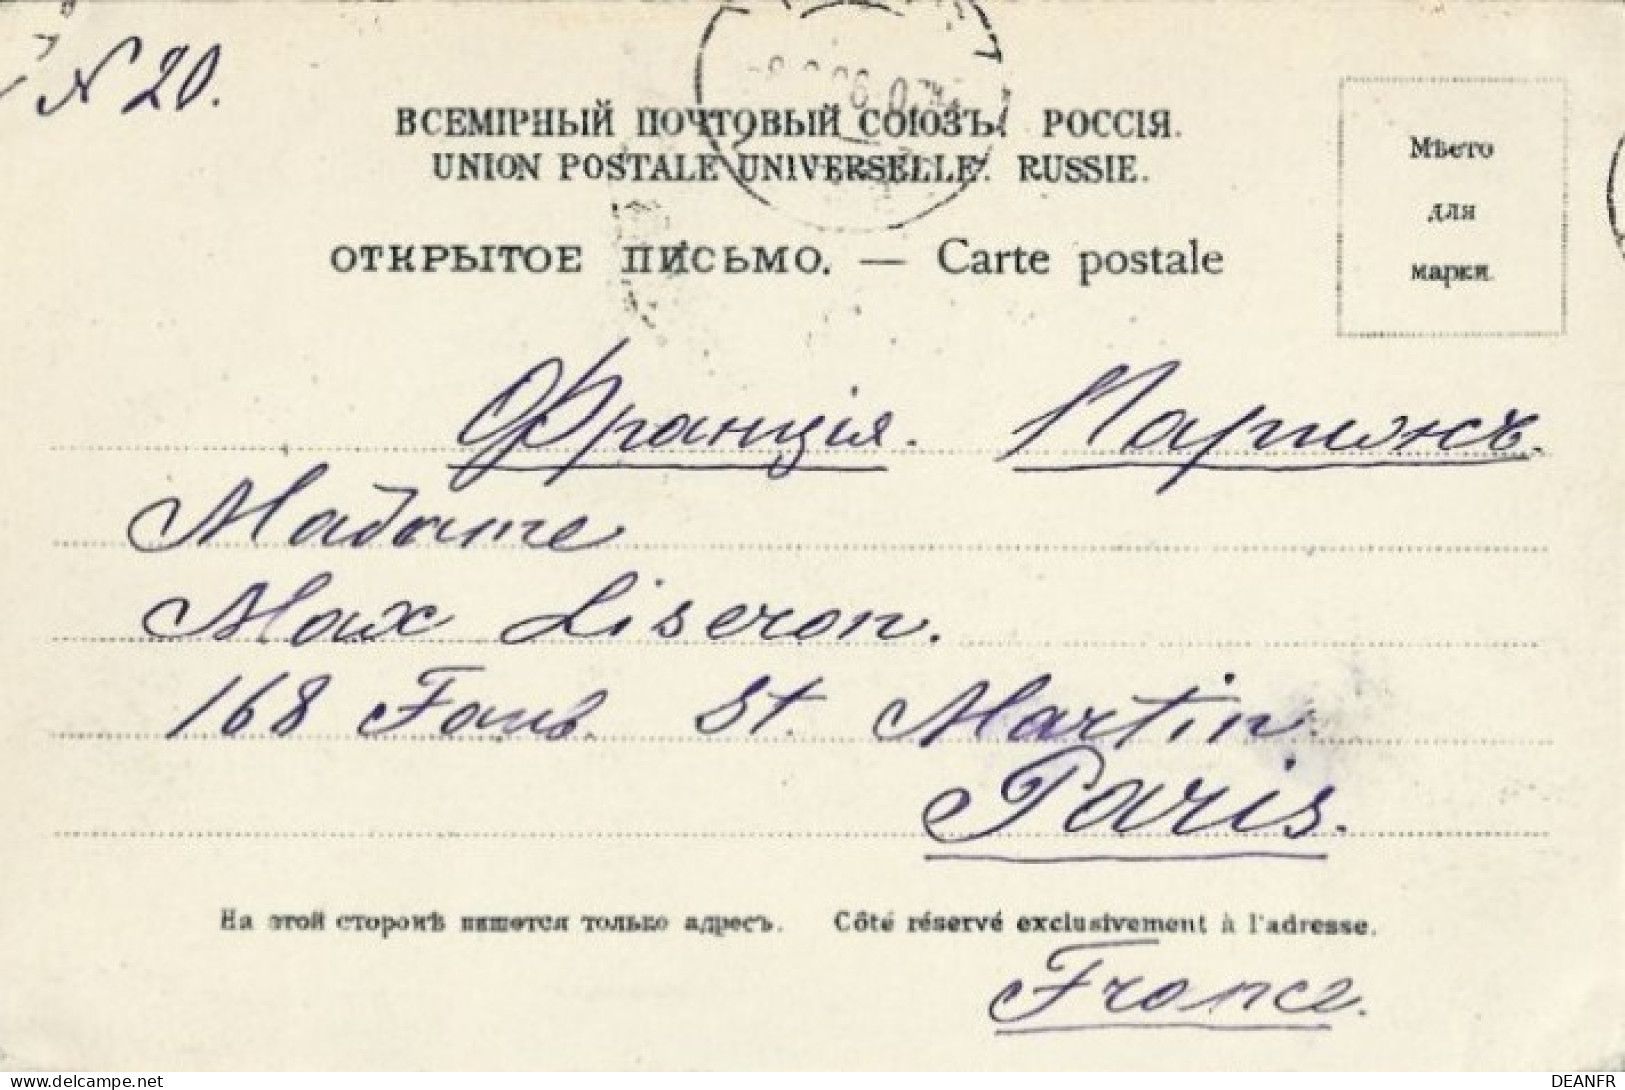 N 20.
ВСЕМІРНЫЙ ПОЧТОВЫЙ СОЮЗЪ. РОССІЯ.
UNION POSTALE UNIVERSELLE. RUSSIE.
Мѣсто
для
марки.
ОТКРЫТОЕ ПИСЬМО. — Carte postale
Франція. Парижъ.
Madame
Max Liseron.
168 Faub. St. Martin.
Paris.
На этой сторонѣ пишется только адресъ. Côté réservé exclusivement à l'adresse.
France.
delcampe.net
DEANFR